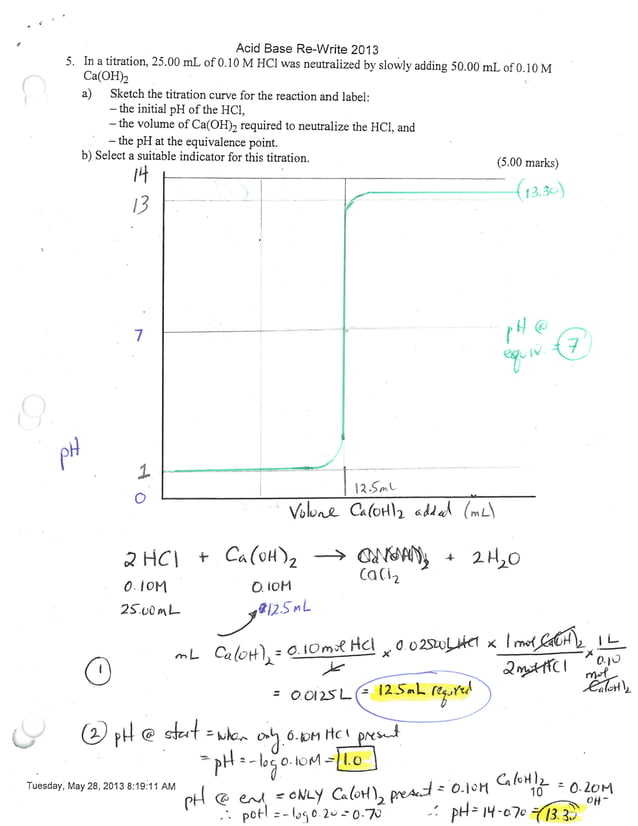 Acid Base Re-Write 2013
5. In a titration, 25.00 mL of 0.10 M HCl was neutralized by slowly adding 50.00 mL of 0.10 M
Ca(OH)₂
a) Sketch the titration curve for the reaction and label:
– the initial pH of the HCl,
– the volume of Ca(OH)₂ required to neutralize the HCl, and
– the pH at the equivalence point.
b) Select a suitable indicator for this titration. (5.00 marks)
14
13
(13.30)
7
pH @
equiv. = 7
pH
1
0
12.5mL
Volume Ca(OH)₂ added (mL)
2 HCl + Ca(OH)₂ → + 2H₂O
CaCl₂
0.10M 0.10M
25.00mL 12.5mL
① mL Ca(OH)₂ = 0.10 mol HCl / L × 0.02500 L HCl × 1 mol Ca(OH)₂ / 2 mol HCl × 1 L / 0.10 mol Ca(OH)₂
= 0.0125L = 12.5mL required
② pH @ start = when only 0.10M HCl present
= pH = -log 0.10M = 1.0
Tuesday, May 28, 2013 8:19:11 AM
pH @ end = ONLY Ca(OH)₂ present = 0.10M Ca(OH)₂ = 0.20M OH-
10
∴ pOH = -log 0.20 = 0.70 ∴ pH = 14-0.70 = 13.30